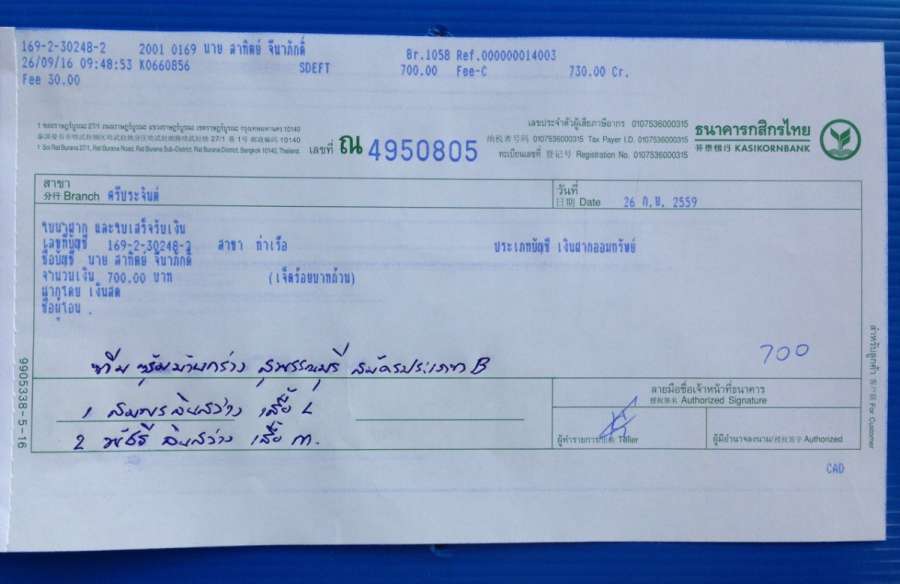 169-2-30248-2 2001 0169 นาย สาทิตย์ จีนาภักดิ์ Br.1058 Ref.000000014003
26/09/16 09:48:53 K0660856 SDEFT 700.00 Fee-C 730.00 Cr.
Fee 30.00
1 ซอยราษฎร์บูรณะ 27/1 ถนนราษฎร์บูรณะ แขวงราษฎร์บูรณะ เขตราษฎร์บูรณะ กรุงเทพมหานคร 10140
27/1 巷 1号 邮政编码 10140
1 Soi Rat Burana 27/1, Rat Burana Road, Rat Burana Sub-District, Rat Burana District, Bangkok 10140, Thailand.
เลขที่ ณ 4950805
เลขประจำตัวผู้เสียภาษีอากร 0107536000315
纳税者号码 0107536000315 Tax Payer I.D. 0107536000315
ทะเบียนเลขที่ 登记号 Registration No. 0107536000315
ธนาคารกสิกรไทย
开泰银行 KASIKORNBANK
สาขา
分行 Branch ศรีประจันต์
วันที่
日期 Date 26 ก.ย. 2559
ใบนำฝาก และใบเสร็จรับเงิน
เลขที่บัญชี 169-2-30248-2 สาขา ท่าเรือ ประเภทบัญชี เงินฝากออมทรัพย์
ชื่อบัญชี นาย สาทิตย์ จีนาภักดิ์
จำนวนเงิน 700.00 บาท (เจ็ดร้อยบาทถ้วน)
ฝากโดย เงินสด
ชื่อผู้โอน .
ทีม ซุ้มบ้านกร่าง สุพรรณบุรี สมัครประเภท B
700
1 สมพร อินสว่าง เสื้อ L
2 พัชรี อินสว่าง เสื้อ m.
ลายมือชื่อเจ้าหน้าที่ธนาคาร
授权签名 Authorized Signature
ผู้ทำรายการ Teller
ผู้มีอำนาจลงนาม/授权签字 Authorized
CAD
9905338-5-16
สำหรับลูกค้า 客户联 For Customer